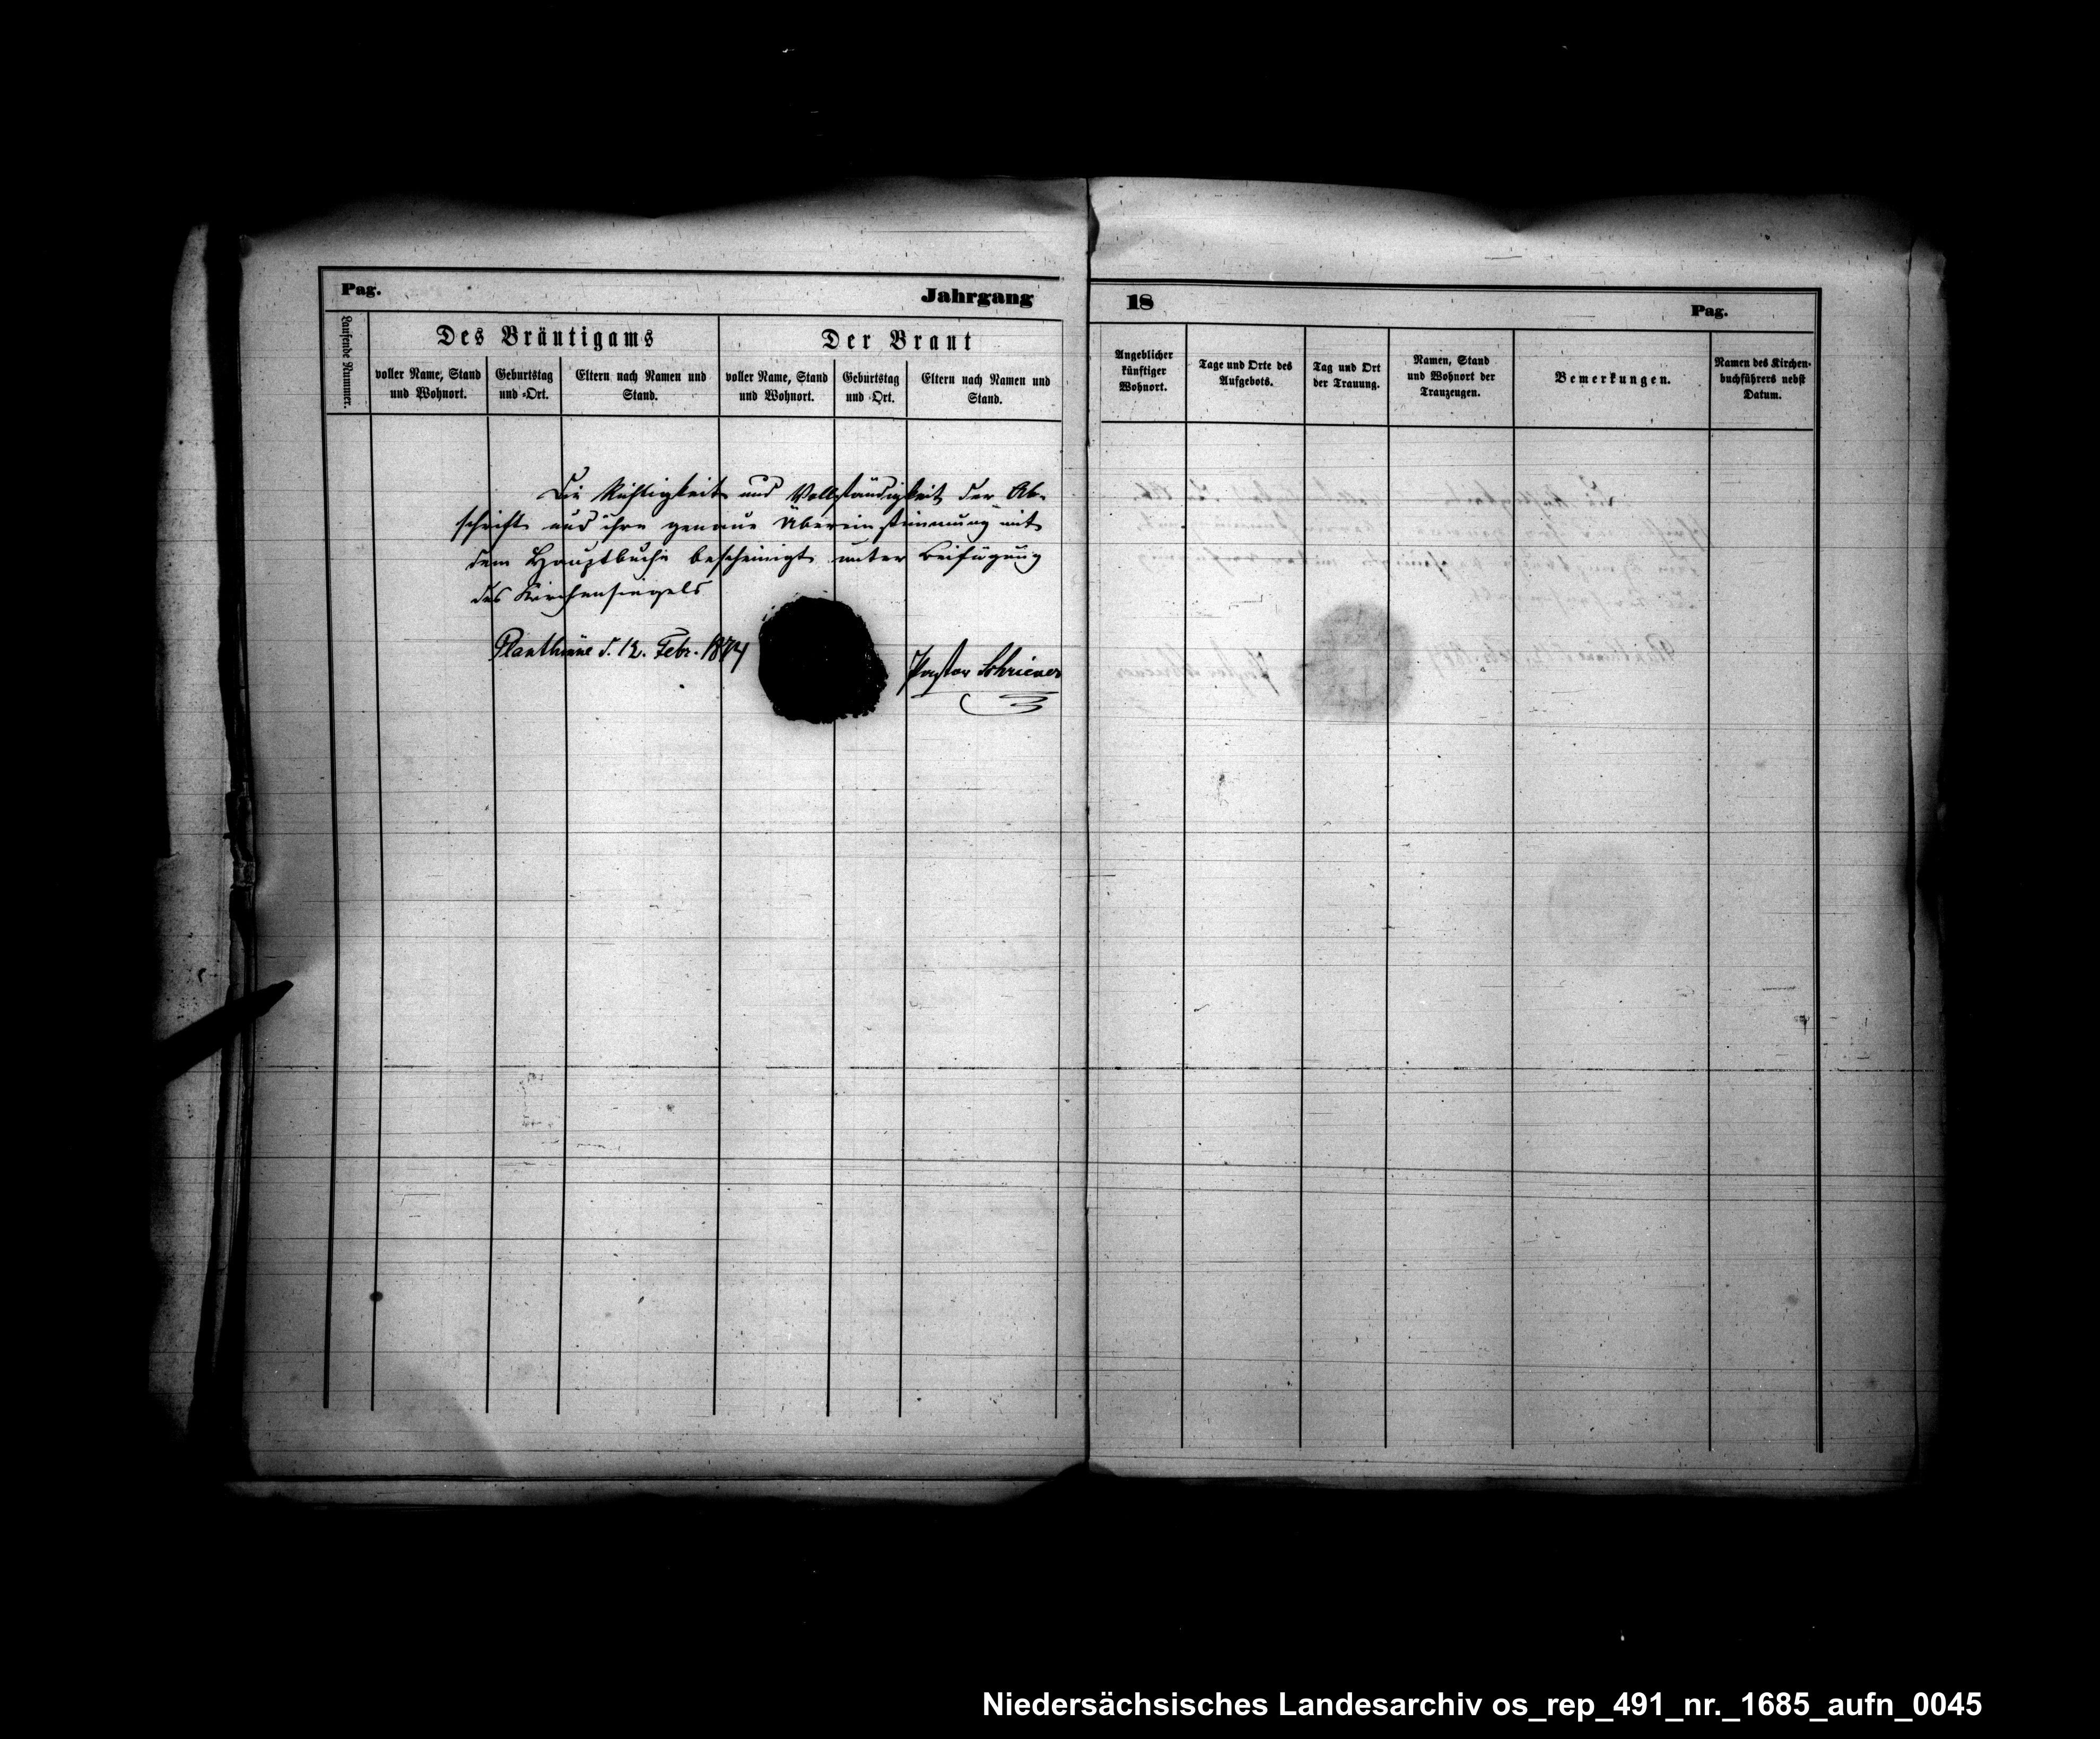 Pag.
Jahrgang
18
Pag.
Laufende Nummer.
Des Bräutigams
Der Braut
voller Name, Stand
und Wohnort.
Geburtstag
und Ort.
Eltern nach Namen und
Stand.
voller Name, Stand
und Wohnort.
Geburtstag
und Ort.
Eltern nach Namen und
Stand.
Angeblicher
künftiger
Wohnort.
Tage und Orte des
Aufgebots.
Tag und Ort
der Trauung.
Namen, Stand
und Wohnort der
Trauzeugen.
Bemerkungen.
Namen des Kirchen-
buchführers nebst
Datum.
Die Richtigkeit und Vollständigkeit der Ab-
schrift und ihre genaue Übereinstimmung mit
dem Hauptbuche bescheinigt unter Beifügung
des Kirchensiegels
Plantlünne d. 12. Febr. 1874
Pastor Schriever
Niedersächsisches Landesarchiv os_rep_491_nr._1685_aufn_0045